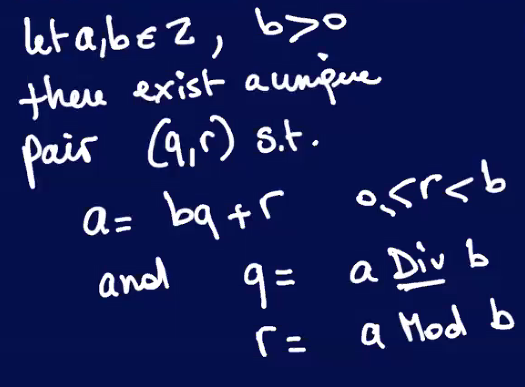 let a,b ∈ Z, b>0
there exist a unique
pair (q,r) s.t.
a= bq+r 0≤r<b
and q= a Div b
r= a Mod b